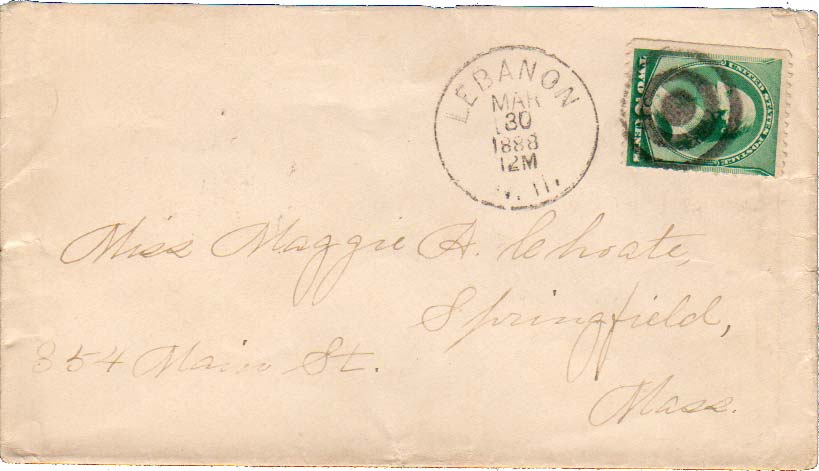 LEBANON
MAR
30
1888
12M
N. H.
UNITED STATES POSTAGE
TWO CENTS
Miss Maggie H. Choate,
Springfield,
354 Main St.
Mass.